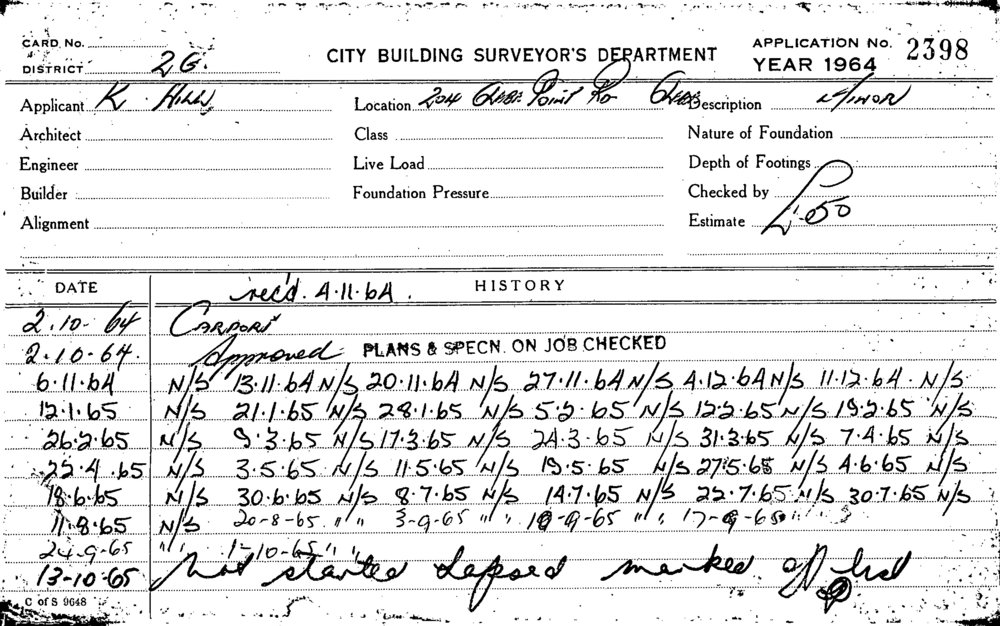 CARD. No.
DISTRICT 2G.
CITY BUILDING SURVEYOR'S DEPARTMENT
APPLICATION No. 2398
YEAR 1964
Applicant K Hills Location 204 Glebe Point Rd Glebe Description Minor
Architect Class Nature of Foundation
Engineer Live Load Depth of Footings
Builder Foundation Pressure Checked by
Alignment Estimate £50
DATE HISTORY
rec'd. 4.11.64.
2.10-64 Carport
2.10.64. Approved PLANS & SPECN. ON JOB CHECKED
6.11.64 N/S 13.11.64 N/S 20.11.64 N/S 27.11.64 N/S 4.12.64 N/S 11.12.64. N/S
12.1.65 N/S 21.1.65 N/S 28.1.65 N/S 5.2.65 N/S 12.2.65 N/S 19.2.65 N/S
26.2.65 N/S 9.3.65 N/S 17.3.65 N/S 24.3.65 N/S 31.3.65 N/S 7.4.65 N/S
22.4.65 N/S 3.5.65 N/S 11.5.65 N/S 19.5.65 N/S 27.5.65 N/S 4.6.65 N/S
18.6.65 N/S 30.6.65 N/S 8.7.65 N/S 14.7.65 N/S 22.7.65 N/S 30.7.65 N/S
11.8.65 N/S 20-8-65 " " 3-9-65 " " 10-9-65 " " 17-9-65 " "
24-9-65 " " 1-10-65 " "
13-10-65 Not started lapsed marked off list
C of S 9648